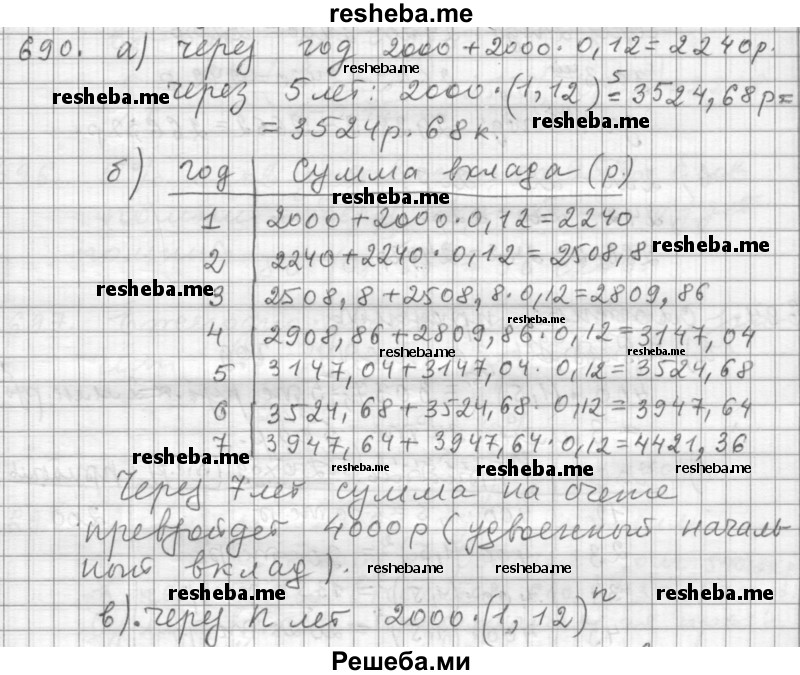 resheba.me
690. а) через год 2000 + 2000 · 0,12 = 2240р.
resheba.me
через 5 лет: 2000 · (1,12)⁵ = 3524,68р =
resheba.me
= 3524р. 68к.
resheba.me
б) год | Сумма вклада (р.)
resheba.me
1 | 2000 + 2000 · 0,12 = 2240
2 | 2240 + 2240 · 0,12 = 2508,8
resheba.me
resheba.me
3 | 2508,8 + 2508,8 · 0,12 = 2809,86
resheba.me
4 | 2908,86 + 2809,86 · 0,12 = 3147,04
resheba.me resheba.me
5 | 3147,04 + 3147,04 · 0,12 = 3524,68
6 | 3524,68 + 3524,68 · 0,12 = 3947,64
7 | 3947,64 + 3947,64 · 0,12 = 4421,36
resheba.me resheba.me resheba.me resheba.me
Через 7 лет сумма на счете
превзойдет 4000р (удвоенный началь
ный вклад).
resheba.me resheba.me
resheba.me resheba.me resheba.me
в). через n лет 2000 · (1,12)ⁿ
Решеба.ми